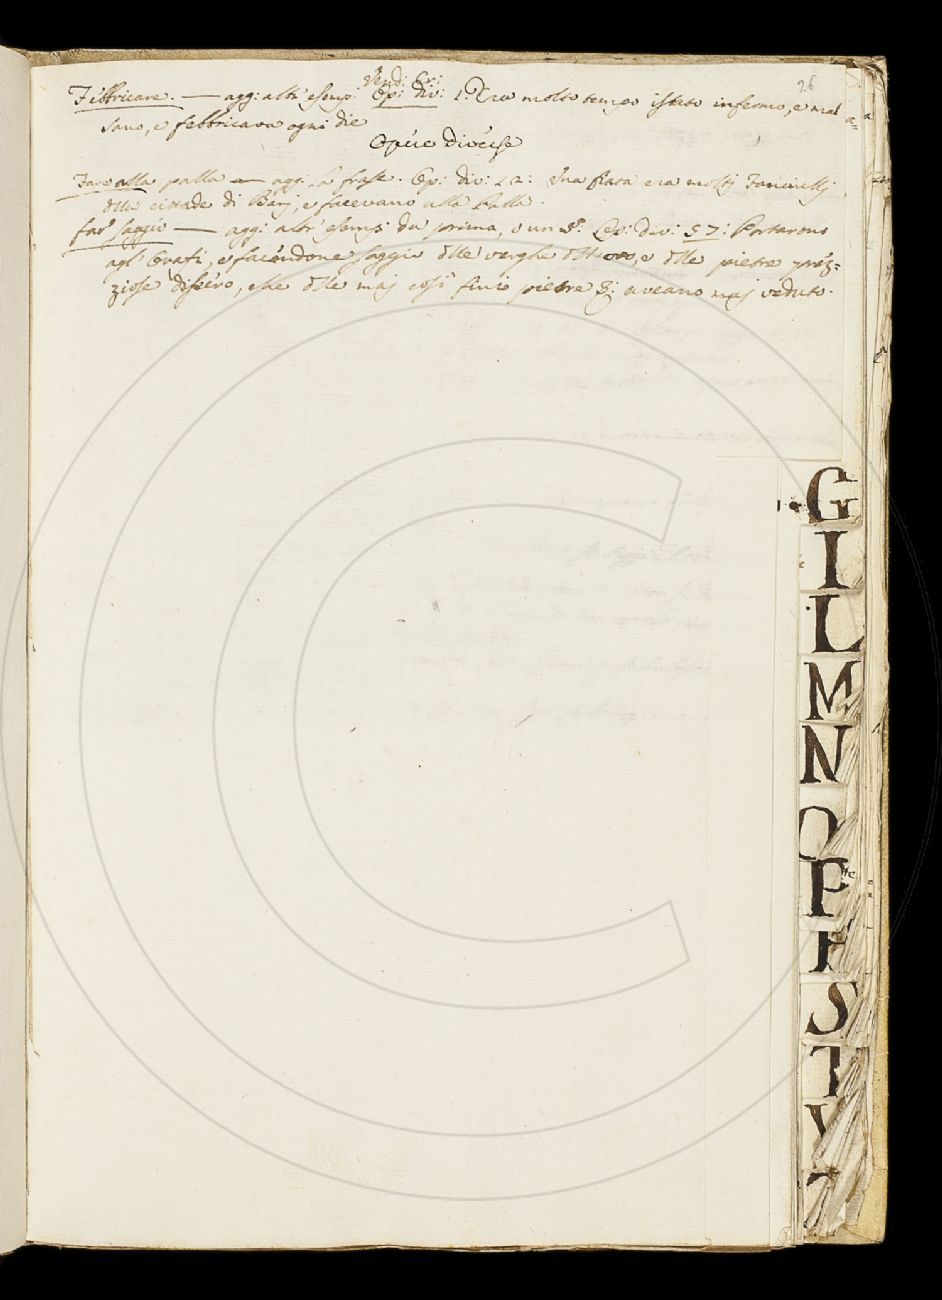 26
Vend: Cri:
Febbricare. — agg: altri esempi Op: div: 1. Era molto tempo istato infermo, e mal
sano, e febbricava ogni die
Opere diverse
Fare alla palla — agg: la frase. Op: div: 22: Una fiata era molti Fanciulli
della cittade di Bary, e facevano alla Palla.
far saggio — agg: altri esempi da prima, o un Op: div: 57: Portarono
agl' Orafi, e facendone saggio delle verghe dell'oro, e delle pietre pre=
ziose disiero, che delle mai così fine pietre aveano mai veduto.
G
I
L
M
N
O
P
S
T
V